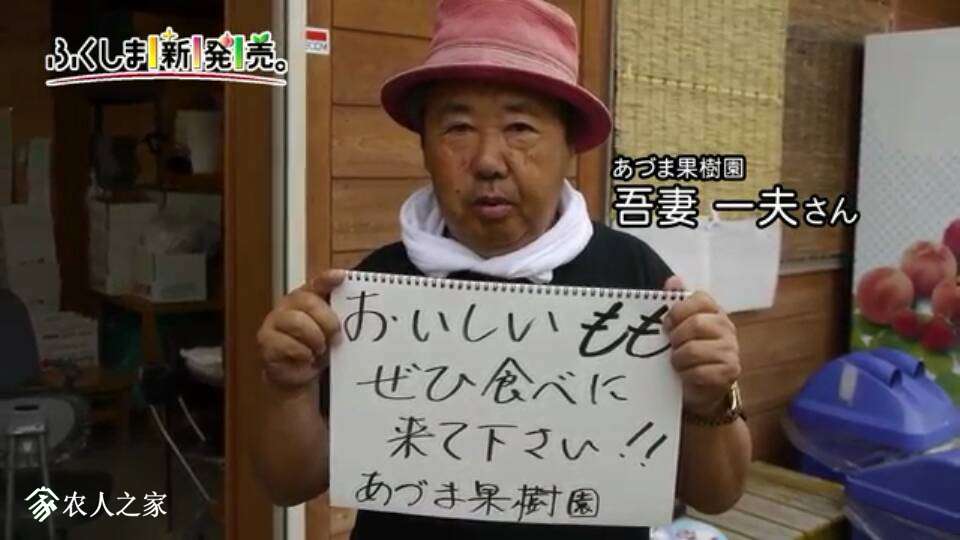 ふくしま新発売。
あづま果樹園
吾妻 一夫さん
おいしいもも
ぜひ食べに
来て下さい!!
あづま果樹園
农人之家